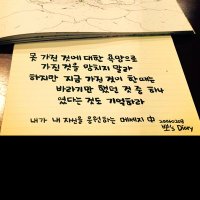 못 가진 것에 대한 욕망으로
가진 것을 망치지 말라
하지만 지금 가진 것이 한때는
바라기만 했던 것 중 하나
였다는 것도 기억하라
내가 내 자신을 응원하는 메세지 中
's Diary